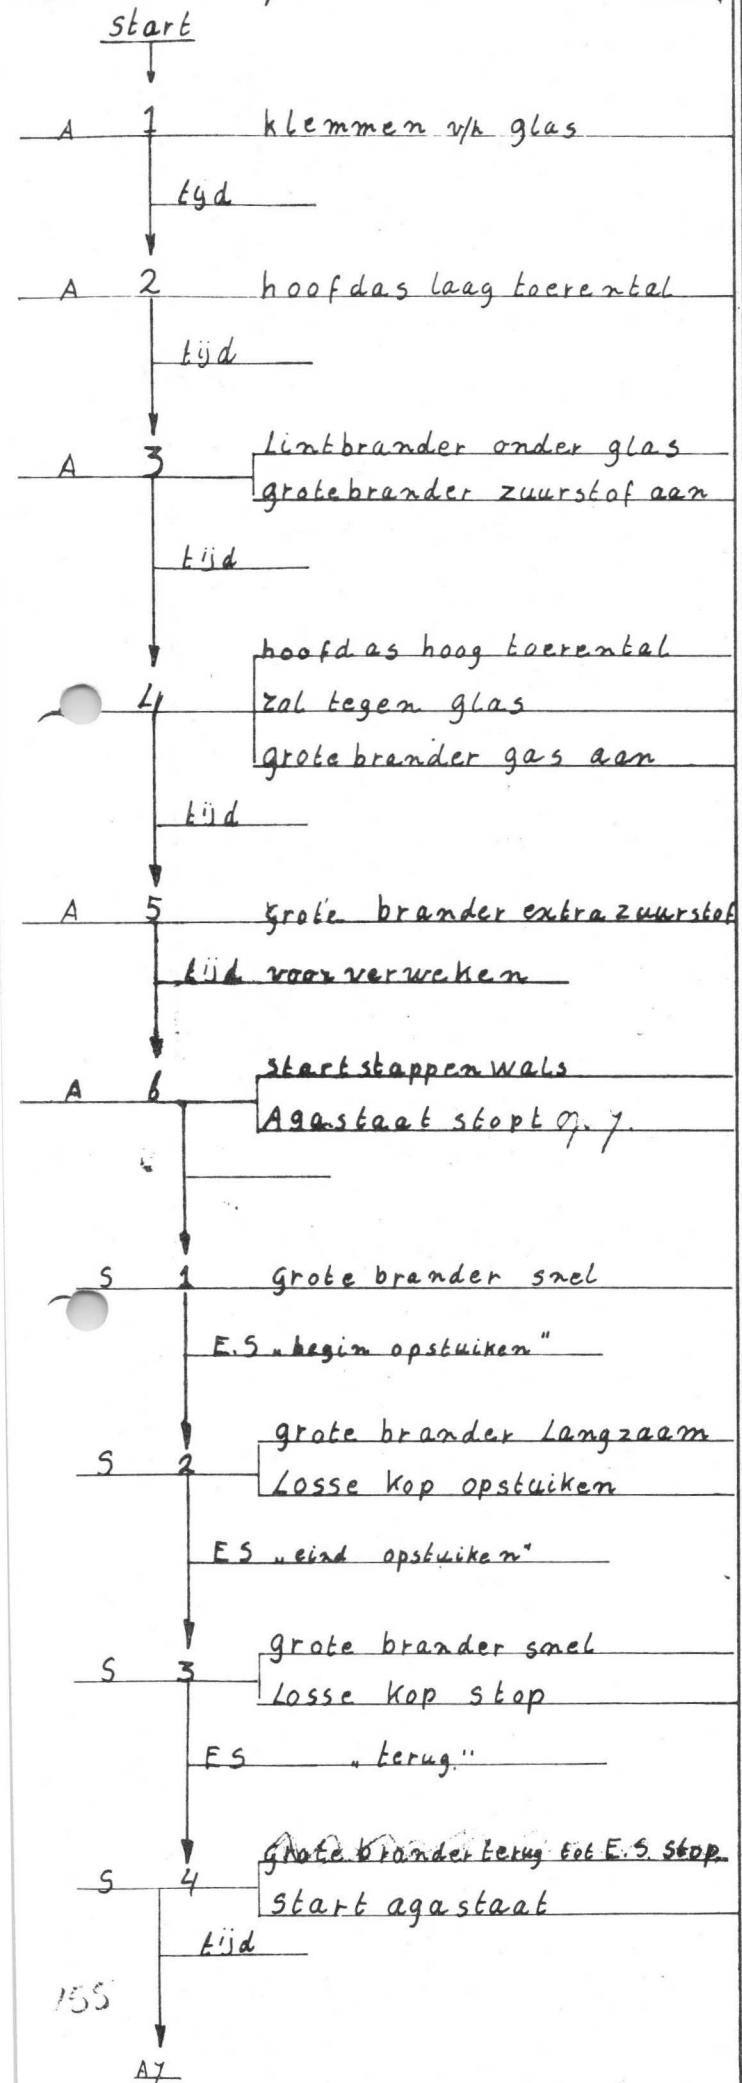 start
A 1 klemmen v/h glas
tijd
A 2 hoofdas laag toerental
tijd
A 3 Lintbrander onder glas
grotebrander zuurstof aan
tijd
hoofdas hoog toerental
4 rol tegen glas
grote brander gas aan
tijd
A 5 grote brander extra zuurstof
tijd voor verweken
A 6 start stappen wals
Agastaat stopt op 7.
S 1 grote brander snel
E.S „begin opstuiken"
S 2 grote brander Langzaam
Losse kop opstuiken
ES „eind opstuiken"
S 3 grote brander snel
Losse kop stop
ES „terug"
S 4 grote brander terug tot E.S. stop
start agastaat
tijd
155
A7